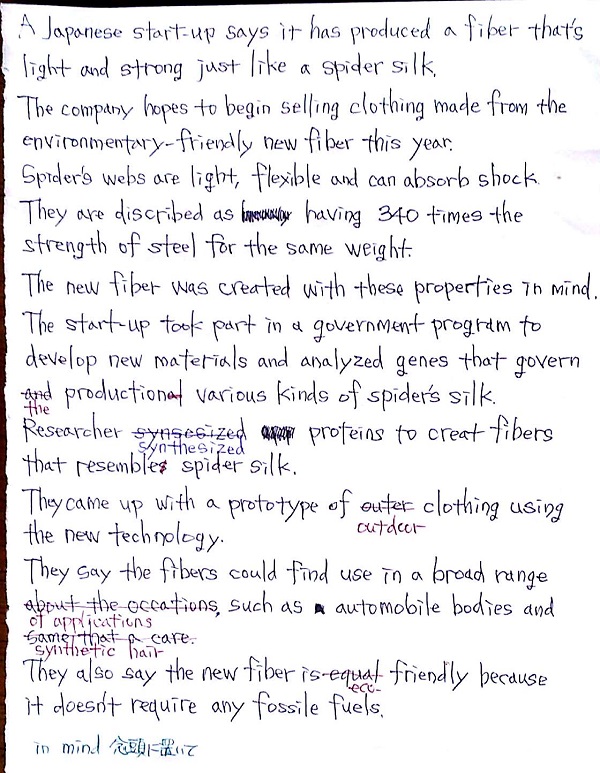 A Japanese start-up says it has produced a fiber that's
light and strong just like a spider silk.
The company hopes to begin selling clothing made from the
environmentary-friendly new fiber this year.
Spider's webs are light, flexible and can absorb shock.
They are discribed as having 340 times the
strength of steel for the same weight.
The new fiber was created with these properties in mind.
The start-up took part in a government program to
develop new materials and analyzed genes that govern
and production various kinds of spider's silk.
the
Researcher synsesized proteins to creat fibers
synthesized
that resembles spider silk.
They came up with a prototype of outer clothing using
outdoor
the new technology.
They say the fibers could find use in a broad range
about the occations, such as automobile bodies and
of applications
same that a care.
synthetic hair
They also say the new fiber is equal friendly because
eco-
it doesn't require any fossile fuels.
in mind 念頭に置いて